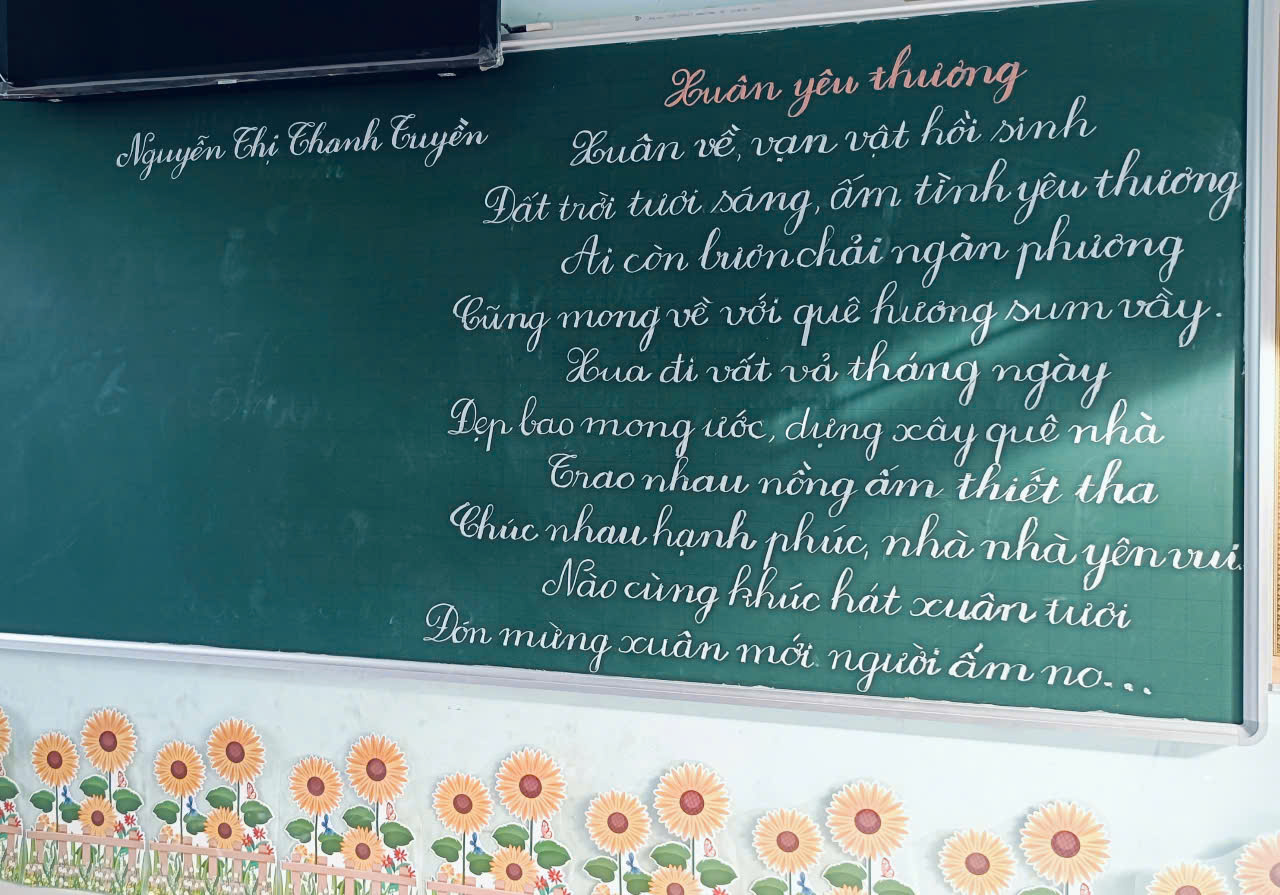 Nguyễn Thị Thanh Tuyền
Xuân yêu thương
Xuân về, vạn vật hồi sinh
Đất trời tươi sáng, ấm tình yêu thương
Ai còn bươn chải ngàn phương
Cũng mong về với quê hương sum vầy.
Xua đi vất vả tháng ngày
Đẹp bao mong ước, dựng xây quê nhà
Trao nhau nồng ấm thiết tha
Chúc nhau hạnh phúc, nhà nhà yên vui.
Nào cùng khúc hát xuân tươi
Đón mừng xuân mới người ấm no...